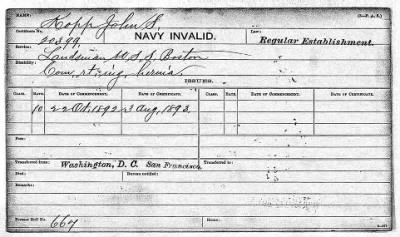 NAME: Kopp John S.
Certificate No.
20399.
NAVY INVALID.
Law:
Regular Establishment.
Service: Landsman U.S.S. Boston
Disability: hernia.
ISSUES.
CLASS. RATE. DATE OF COMMENCEMENT. DATE OF CERTIFICATE. CLASS. RATE. DATE OF COMMENCEMENT. DATE OF CERTIFICATE.
10 22 Oct, 1892 3 Aug, 1893.
Fees:
Transferred from: Washington, D. C. San Francisco Transferred to:
Died: Bureau notified:
Remarks:
Former Roll No. 667 Home: